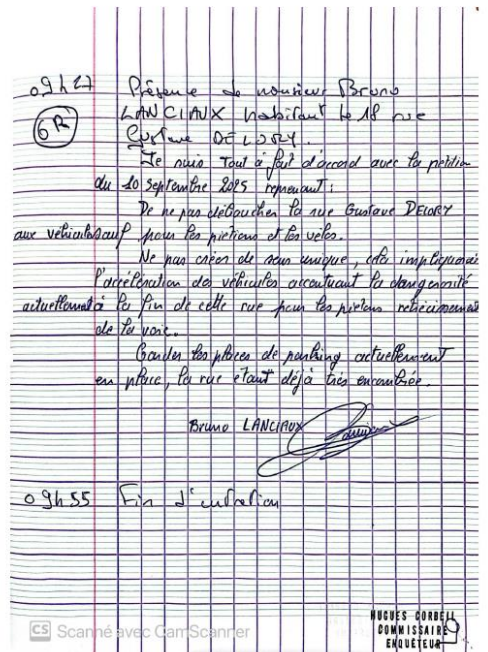 09h27 Présence de monsieur Bruno
6R LANCIAUX habitant le 18 rue
Gustave DELORY.
Je suis tout à fait d'accord avec la pétition
du 10 septembre 2025 reprenant :
De ne pas déboucher la rue Gustave DELORY
aux véhicules sauf pour les piétons et les vélos.
Ne pas créer de sens unique, cela impliquerait
l'accélération des véhicules accentuant la dangerosité
actuellement à la fin de cette rue pour les piétons rétrécissement
de la voie.
Garder les places de parking actuellement
en place, la rue étant déjà très encombrée.
Bruno LANCIAUX
09h55 Fin d'entretien
CS Scanné avec CamScanner
HUGUES CORBEIL
COMMISSAIRE
ENQUÊTEUR